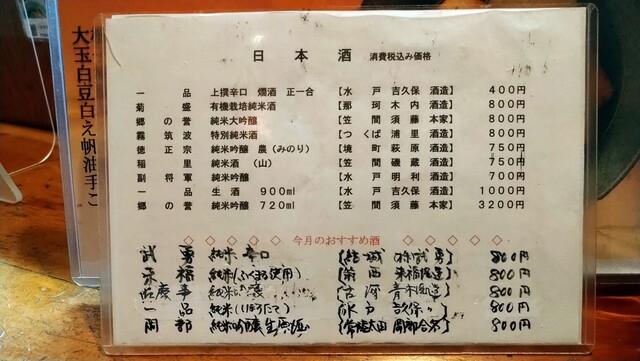 大玉白豆白え帆油手こ
日本酒 消費税込み価格
一品 上撰辛口 燗酒 正一合 【水戸 吉久保 酒造】 400円
菊盛 有機栽培純米酒 【那珂 木内 酒造】 800円
郷の誉 純米大吟醸 【笠間 須藤 本家】 800円
霧筑波 特別純米酒 【つくば 浦里 酒造】 800円
徳正宗 純米吟醸 農(みのり) 【境町 萩原 酒造】 750円
稲里 純米酒 (山) 【笠間 磯蔵 酒造】 750円
副将軍 純米吟醸 【水戸 明利 酒造】 700円
一品 生酒 900ml 【水戸 吉久保 酒造】 1000円
郷の誉 純米吟醸 720ml 【笠間 須藤 本家】 3200円
◇ ◇ ◇ ◇ ◇ 今月のおすすめ酒 ◇ ◇ ◇ ◇ ◇
武勇 純米 辛口 【結城 武勇】 800円
来福 純米(ふくまる使用) 【筑西 来福酒造】 800円
御慶事 純米吟醸 【古河 青木酒造】 800円
一品 純米(しぼりたて) 【水戸 吉久保】 800円
岡部 純米吟醸 生原酒 【常陸太田 岡部合名】 800円